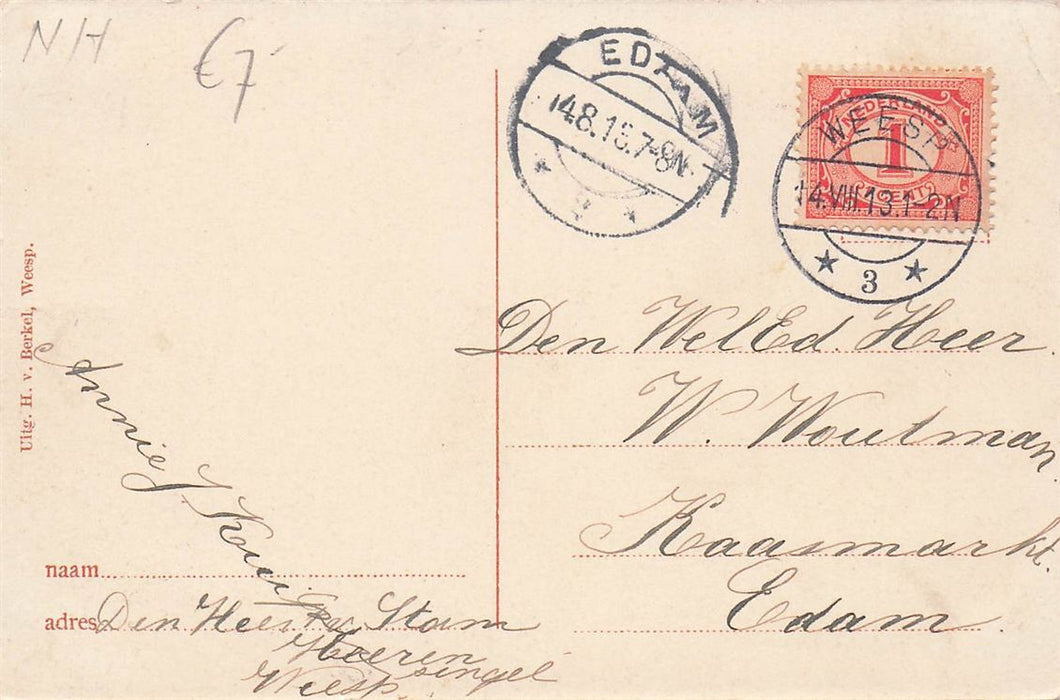 NH
€7
EDAM
14.8.13.7-8N.
NEDERLAND
1
CENT
WEESP
14.VIII.13.1-2N
3
Den WelEd. Heer
W. Woutman
Kaasmarkt.
Edam
Uitg. H. v. Berkel, Weesp.
Annie J.
naam
adres Den Heer Stam
Heeren
singel
Weesp.